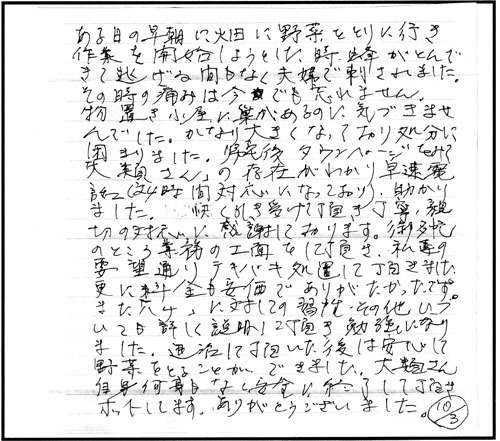 ある日の早朝に火田に野菜をとりに行き
作業を開始しようとした時、蜂がとんで
きて逃げる間もなく夫婦で刺されました。
その時の痛みは今でも忘れません。
物置き小屋に巣があるのに気づきませ
んでした。かなり大きくなっており処分に
困まりました。帰宅後タウンページをみて
大類さんの存在がわかり早速電
話(24時間対応になっており)助かり
ました。 快く引き受けて頂き丁寧、親
切の対応に感謝しております。御多忙
のところ業務の工面をして頂き、私達の
要望通りテキパキ処置して頂きました
更に料金も安価でありがたかったです。
また に対しての習性・その他につ
いても詳しく説明して頂き勉強になり
ました。退治して頂いた後は安心して
野菜をとることができました。大類さん
自身何事もなく安全に終了して頂き
ホットします。ありがとうございました。
10/3